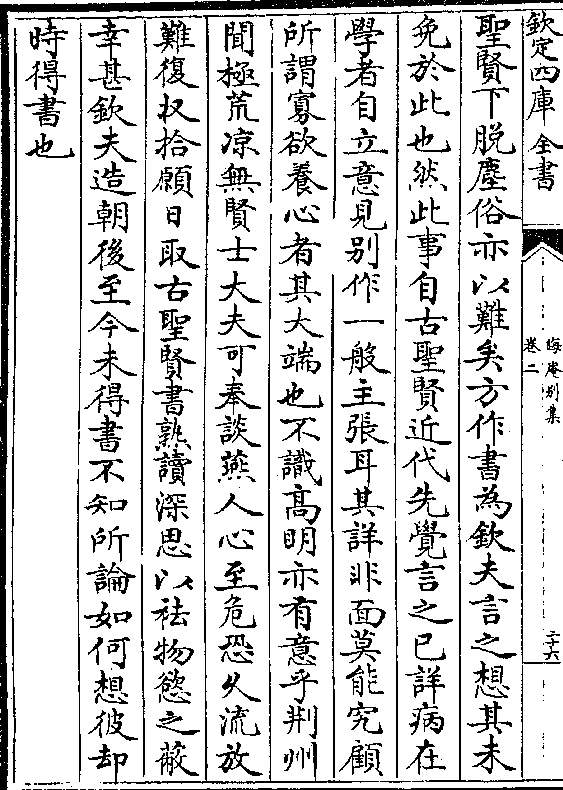 欽定四庫全書
晦庵别集
卷二
二十六
聖賢下脱塵俗亦以難矣方作書為欽夫言之想其未
免於此也然此事自古聖賢近代先覺言之已詳病在
學者自立意見别作一般主張耳其詳非面莫能究顧
所謂寡欲養心者其大端也不識高明亦有意乎荆州
聞極荒凉無賢士大夫可奉談燕人心至危恐久流放
難復收拾願日取古聖賢書熟讀深思以祛物慾之蔽
幸甚欽夫造朝後至今未得書不知所論如何想彼却
時得書也